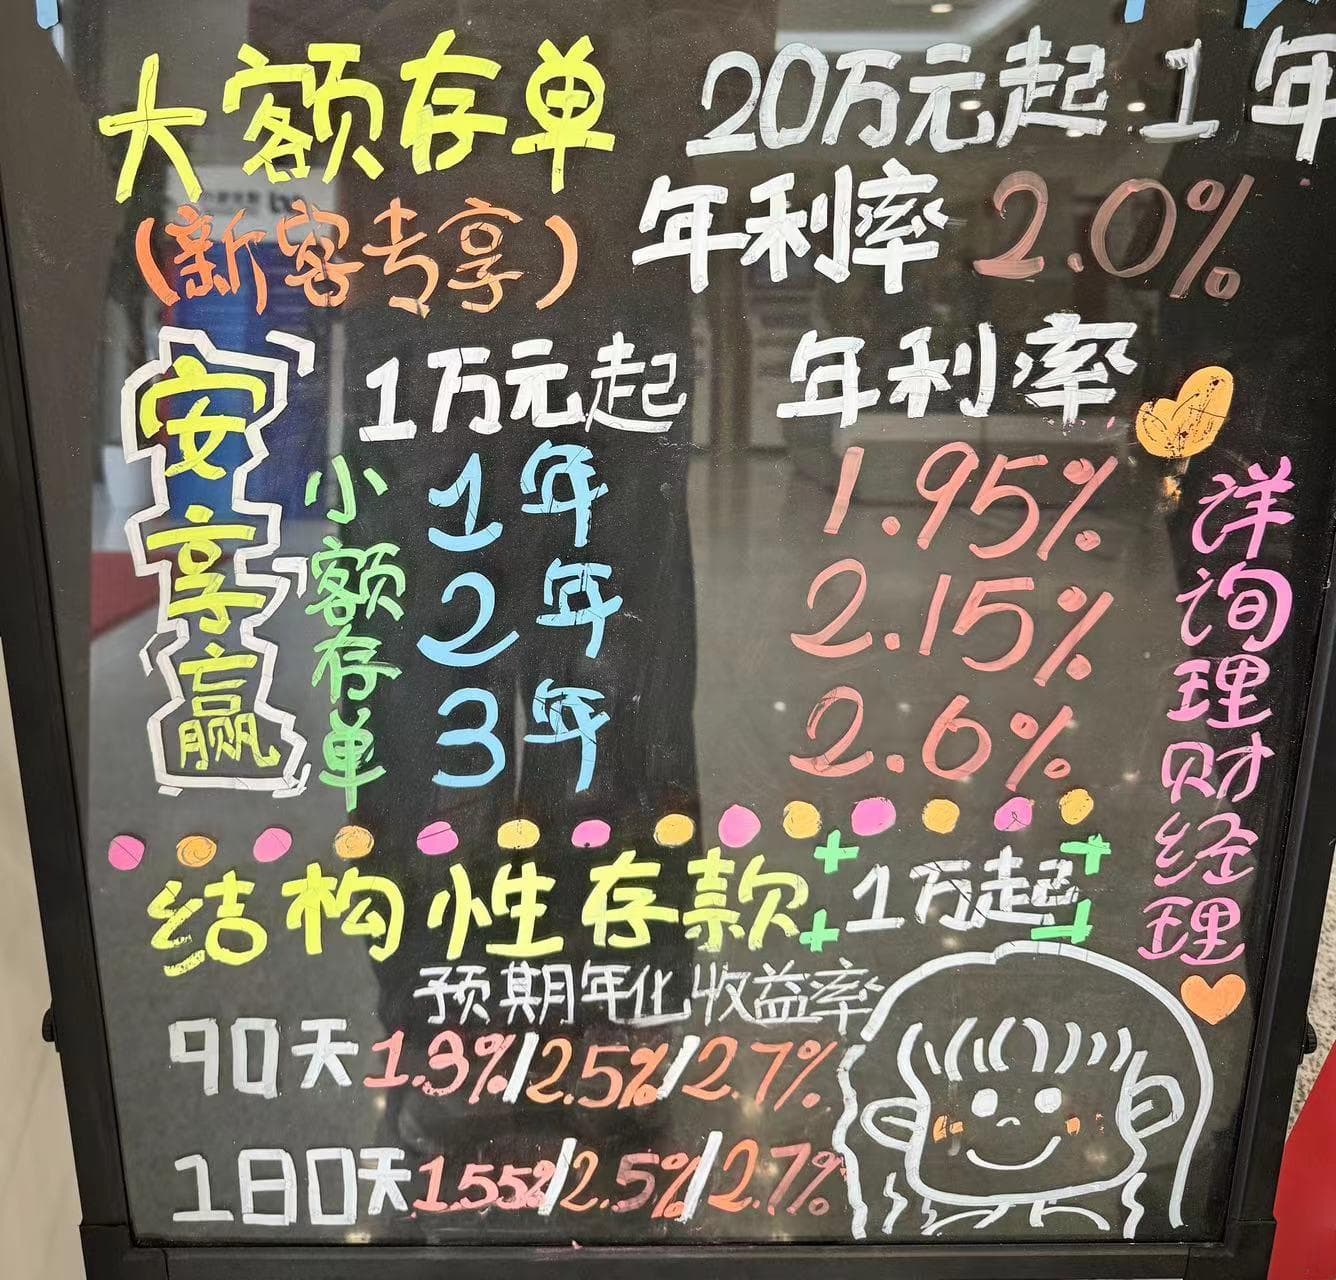 大额存单 20万元起 1年
(新客专享) 年利率 2.0%
安享赢
小额存单
1万元起 年利率
1年 1.95%
2年 2.15%
3年 2.6%
详询理财经理
结构性存款 1万起
预期年化收益率
90天 1.3%/2.5%/2.7%
180天 1.55%/2.5%/2.7%